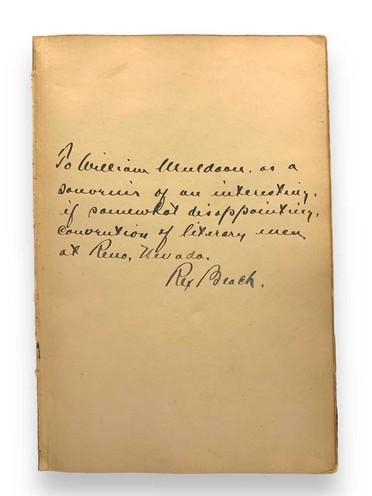 To William Muldoon, as a
souvenir of an interesting,
if somewhat disappointing,
convention of literary men
at Reno, Nevada.
Rex Beach.